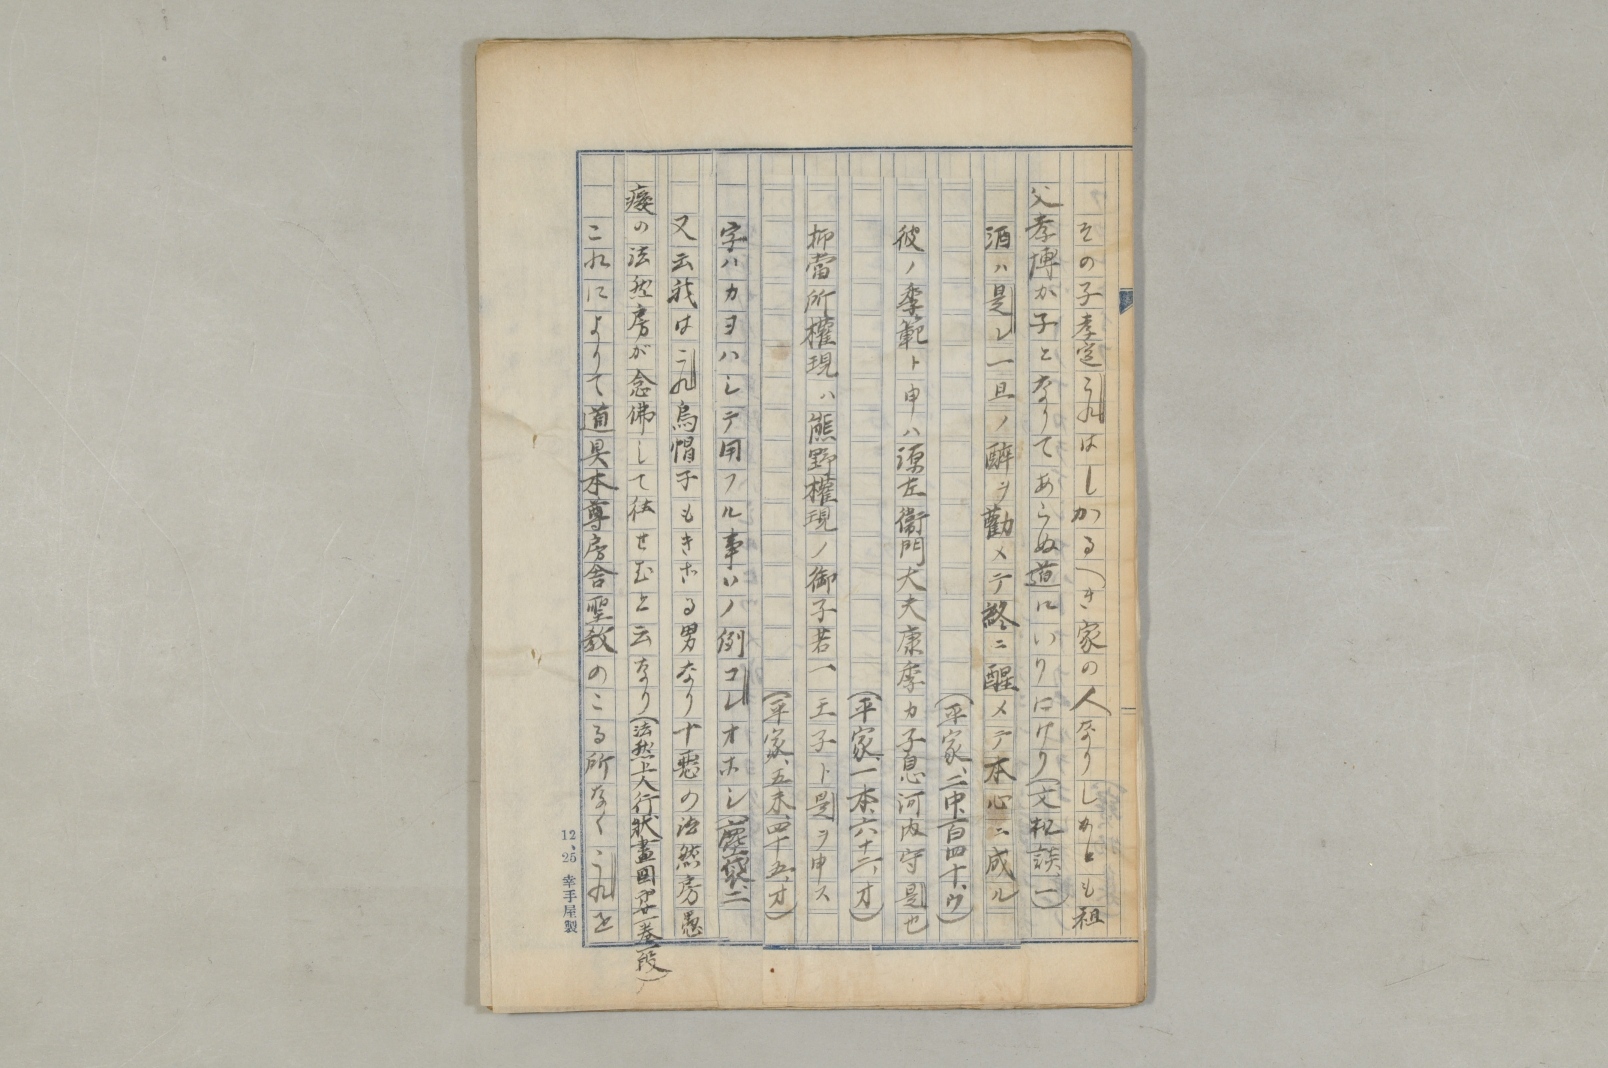 その子孝定これはしかるへき家の人なりしかとも祖
父孝博か子となりてあらぬ道にいりにけり（文机談一）
酒ハ是レ一旦ノ醉ヲ勸メテ終ニ醒メテ本心ニ成ル
（平家、二中、百四十、ウ）
彼ノ季範ト申ハ源左衞門大夫康季カ子息河内守是也
（平家、一本、六十二、オ）
抑當所權現ハ熊野權現ノ御子若一王子ト是ヲ申ス
（平家、五末、四十五、オ）
字ハカヨハシテ用フル事ハノ例コレオホシ（塵袋、二
又云我はこれ烏帽子もきさる男なり十惡の法然房愚
癡の法然房が念佛して往せむと云なり（法然上人行状畫圖
これによりて道具本尊房舎聖教のこる所なくこれを
12、25 幸手屋製